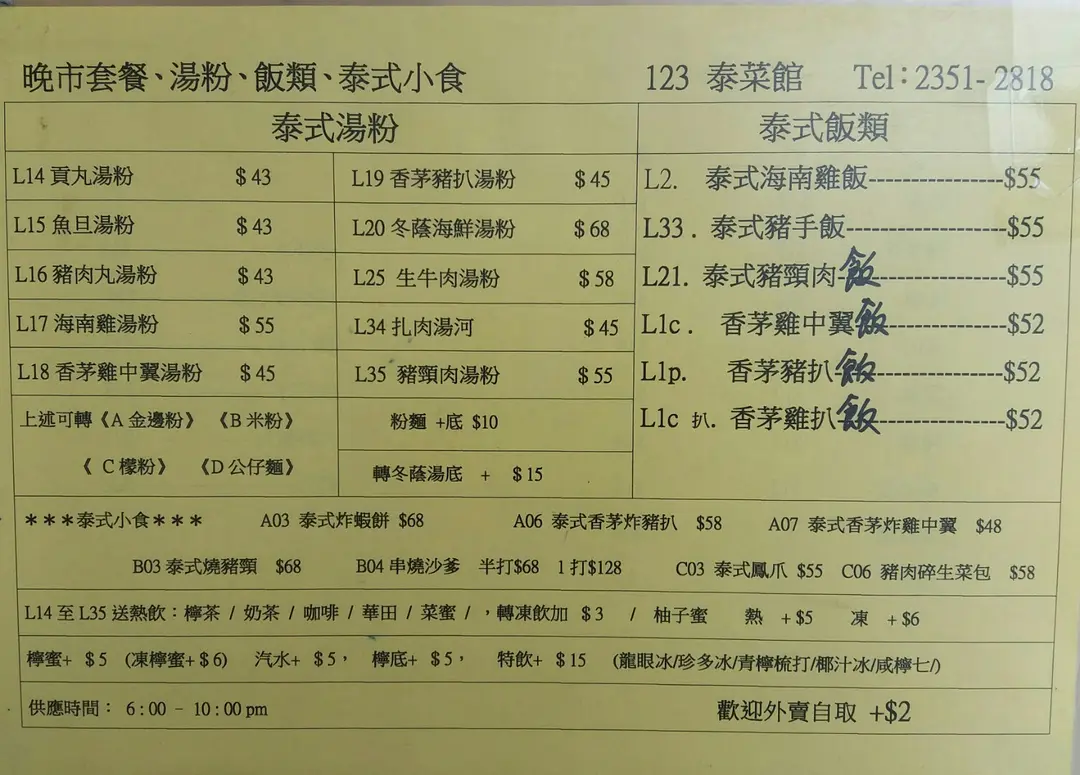 晚市套餐、湯粉、飯類、泰式小食 123 泰菜館 Tel：2351-2818
泰式湯粉
L14 貢丸湯粉 $43
L15 魚旦湯粉 $43
L16 豬肉丸湯粉 $43
L17 海南雞湯粉 $55
L18 香茅雞中翼湯粉 $45
上述可轉《A 金邊粉》 《B 米粉》
《 C 檬粉》 《D 公仔麵》
L19 香茅豬扒湯粉 $45
L20 冬蔭海鮮湯粉 $68
L25 生牛肉湯粉 $58
L34 扎肉湯河 $45
L35 豬頸肉湯粉 $55
粉麵 +底 $10
轉冬蔭湯底 + $15
泰式飯類
L2. 泰式海南雞飯-----------------$55
L33 . 泰式豬手飯--------------------$55
L21. 泰式豬頸肉飯----------------$55
L1c . 香茅雞中翼飯---------------$52
L1p. 香茅豬扒飯----------------$52
L1c 扒. 香茅雞扒飯----------------$52
***泰式小食*** A03 泰式炸蝦餅 $68 A06 泰式香茅炸豬扒 $58 A07 泰式香茅炸雞中翼 $48
B03 泰式燒豬頸 $68 B04 串燒沙爹 半打$68 1 打$128 C03 泰式鳳爪 $55 C06 豬肉碎生菜包 $58
L14 至 L35 送熱飲：檸茶 / 奶茶 / 咖啡 / 華田 / 菜蜜 / ，轉凍飲加 $3 / 柚子蜜 熱 +$5 凍 +$6
檸蜜+ $5 (凍檸蜜+$6) 汽水+ $5， 檸底+ $5， 特飲+ $15 (龍眼冰/珍多冰/青檸梳打/椰汁冰/咸檸七/)
供應時間： 6:00 - 10:00 pm 歡迎外賣自取 +$2